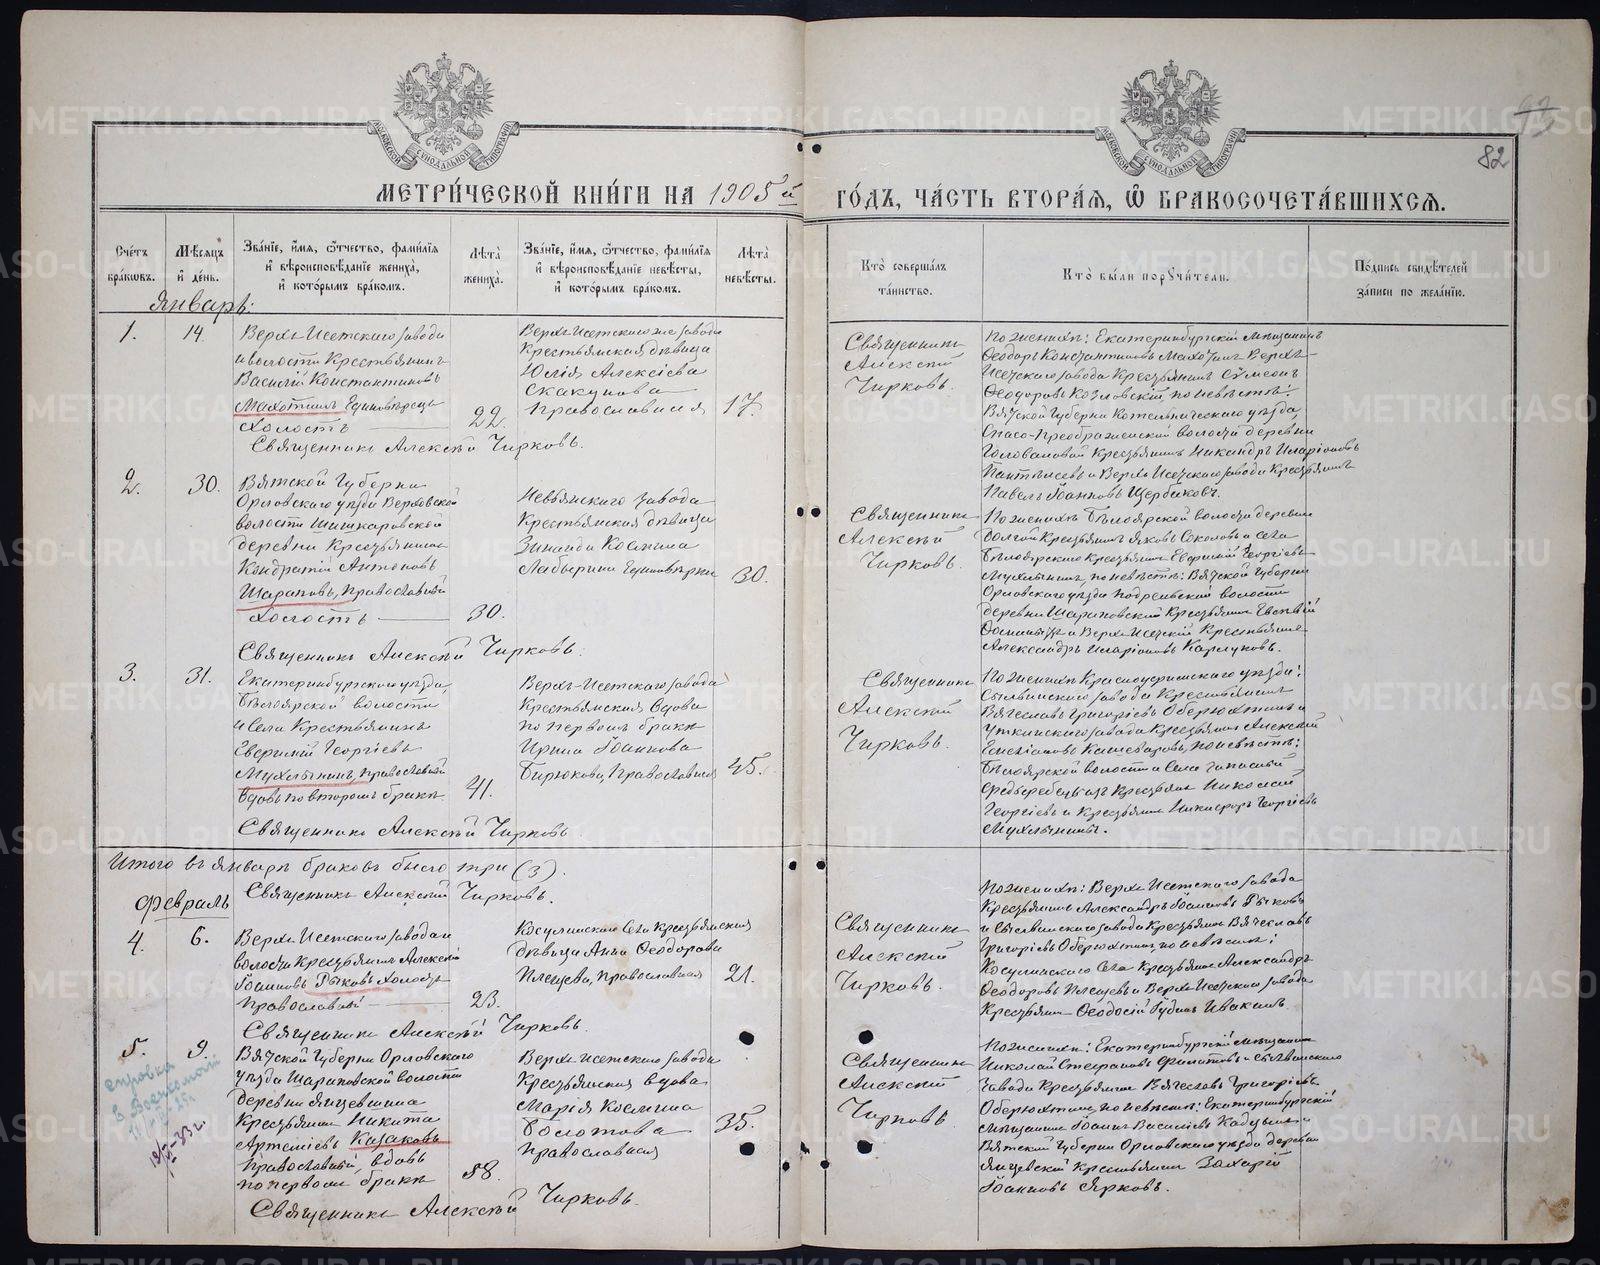 МЕТРИ́ЧЕСКОЙ КНИ́ГИ НА 1905й ГО́ДЪ, ЧА́СТЬ ВТОРА́Ѧ, Ѽ БРАКОСОЧЕТА́ВШИХСѦ.
82
Сче́тъ бра́кωвъ.
Мѣ́сяцъ и҆ де́нь.
Зва́нїе, и҆́мя, ѻ҆́тчество, фами́лїя и҆ вѣроисповѣ́данїе жениха̀, и҆ кото́рымъ бра́комъ.
Лѣта̀ жениха̀.
Зва́нїе, и҆́мя, ѻ҆́тчество, фами́лїя и҆ вѣроисповѣ́данїе невѣ́сты, и҆ кото́рымъ бра́комъ.
Лѣта̀ невѣ́сты.
Кто̀ соверша́лъ та́инство.
Кто̀ бы́ли порꙋчи́тели.
По́дпись свидѣ́телей за́писи по жела́нїю.
Январь:
1.
14
Верхъ-Исетскаго завода
и волости Крестьянинъ
Василій Константиновъ
Махотинъ Единовѣрецъ
Холостъ
22.
Верхъ-Исетскаго же завода
Крестьянская дѣвица
Юлія Алексіева
Скакунова
Православная
17.
Священникъ
Алексѣй
Чирковъ.
По женихѣ: Екатеринбургскій мѣщанинъ
Ѳеодоръ Константиновъ Махотинъ Верхъ-
Исетскаго завода Крестьянинъ Сѵмеонъ
Ѳеодоровъ Козловскій, по невѣстѣ:
Вятской Губерніи Котельническаго уѣзда,
Спасо-Преображенской волости деревни
Головановой Крестьянинъ Никандръ Иларіоновъ
и Верхъ Исетскаго завода Крестьянинъ
Павелъ Іоанновъ Щербаковъ.
Священникъ Алексѣй Чирковъ.
2.
30.
Вятской Губерніи
Орловскаго уѣзда Верховской
волости Шишкаровской
деревни Крестьянинъ
Кондратій Антоновъ
Шараповъ, Православный
Холостъ
30.
Невьянскаго завода
Крестьянская дѣвица
Зинаида Космина
Лабырина Единовѣрка
30.
Священникъ
Алексѣй
Чирковъ.
По женихѣ Бѣлоярской волости деревни
Крестьянинъ Яковъ Соколовъ и села
Бѣлоярскаго Крестьянинъ Евфимій Георгіевъ
Мухлынинъ, по невѣстѣ: Вятской Губерніи
Орловскаго уѣзда Подрельской волости
деревни Шараповской Крестьянинъ Евгеній
и Верхъ-Исетскій Крестьянинъ
Александръ Иларіоновъ Кармуковъ.
Священникъ Алексѣй Чирковъ.
3.
31.
Екатеринбургскаго уѣзда,
Бѣлоярской волости
и села Крестьянинъ
Евфимій Георгіевъ
Мухлынинъ, Православный
вдовъ по второмъ бракѣ
41.
Верхъ-Исетскаго завода
Крестьянская вдова
по первомъ бракѣ
Ирина Іоаннова
Бирюкова, Православная
45.
Священникъ
Алексѣй
Чирковъ.
По женихѣ Красноуфимскаго уѣзда:
Сылвинскаго завода Крестьянинъ
Вячеславъ Григоріевъ Оберюхтинъ и
Уткинскаго завода Крестьянинъ Алексѣй
Кашеваровъ, по невѣстѣ:
Бѣлоярской волости и села запасный
Крестьян. Николай
Георгіевъ и Крестьянинъ Никифоръ Георгіевъ
Мухлынины.
Священникъ Алексѣй Чирковъ
Итого въ январѣ браковъ было три (3).
Священникъ Алексѣй Чирковъ.
Февраль
4.
6.
Верхъ-Исетскаго завода и
волости Крестьянинъ Алексѣй
Іоанновъ Рѣковъ Холостъ
Православный
23.
Косулинскаго Села Крестьянская
дѣвица Анна Ѳеодорова
Плещева, Православная
21.
Священникъ
Алексѣй
Чирковъ.
По женихѣ: Верхъ Исетскаго завода
Крестьянинъ Александръ Іоанновъ Рѣковъ
и Сылвинскаго завода Крестьянинъ Вячеславъ
Григоріевъ Оберюхтинъ, по невѣстѣ:
Косулинскаго Села Крестьянинъ Александръ
Ѳеодоровъ Плещевъ и Верхъ-Исетскаго завода
Крестьянинъ Ѳеодосій
Священникъ Алексѣй Чирковъ.
5.
9.
справка
в Военкомат
Вятской Губерніи Орловскаго
уѣзда Шараповской волости
деревни
Крестьянинъ Никита
Артеміевъ Казаковъ
Православный, вдовъ
по первомъ бракѣ
58.
Верхъ-Исетскаго завода
Крестьянская вдова
Марія Космина
Болотова
Православная
35.
Священникъ
Алексѣй
Чирковъ.
По женихѣ: Екатеринбургскій мѣщанинъ
Николай Стефановъ Филатовъ и Сылвинскаго
завода Крестьянинъ Вячеславъ Григоріевъ
Оберюхтинъ, по невѣстѣ: Екатеринбургскій
мѣщанинъ Іоаннъ Василіевъ
Вятской Губерніи Орловскаго уѣзда деревни
Крестьянинъ Захарій
Іоанновъ Ярковъ.
Священникъ Алексѣй Чирковъ.
METRIKI.GASO-URAL.RU